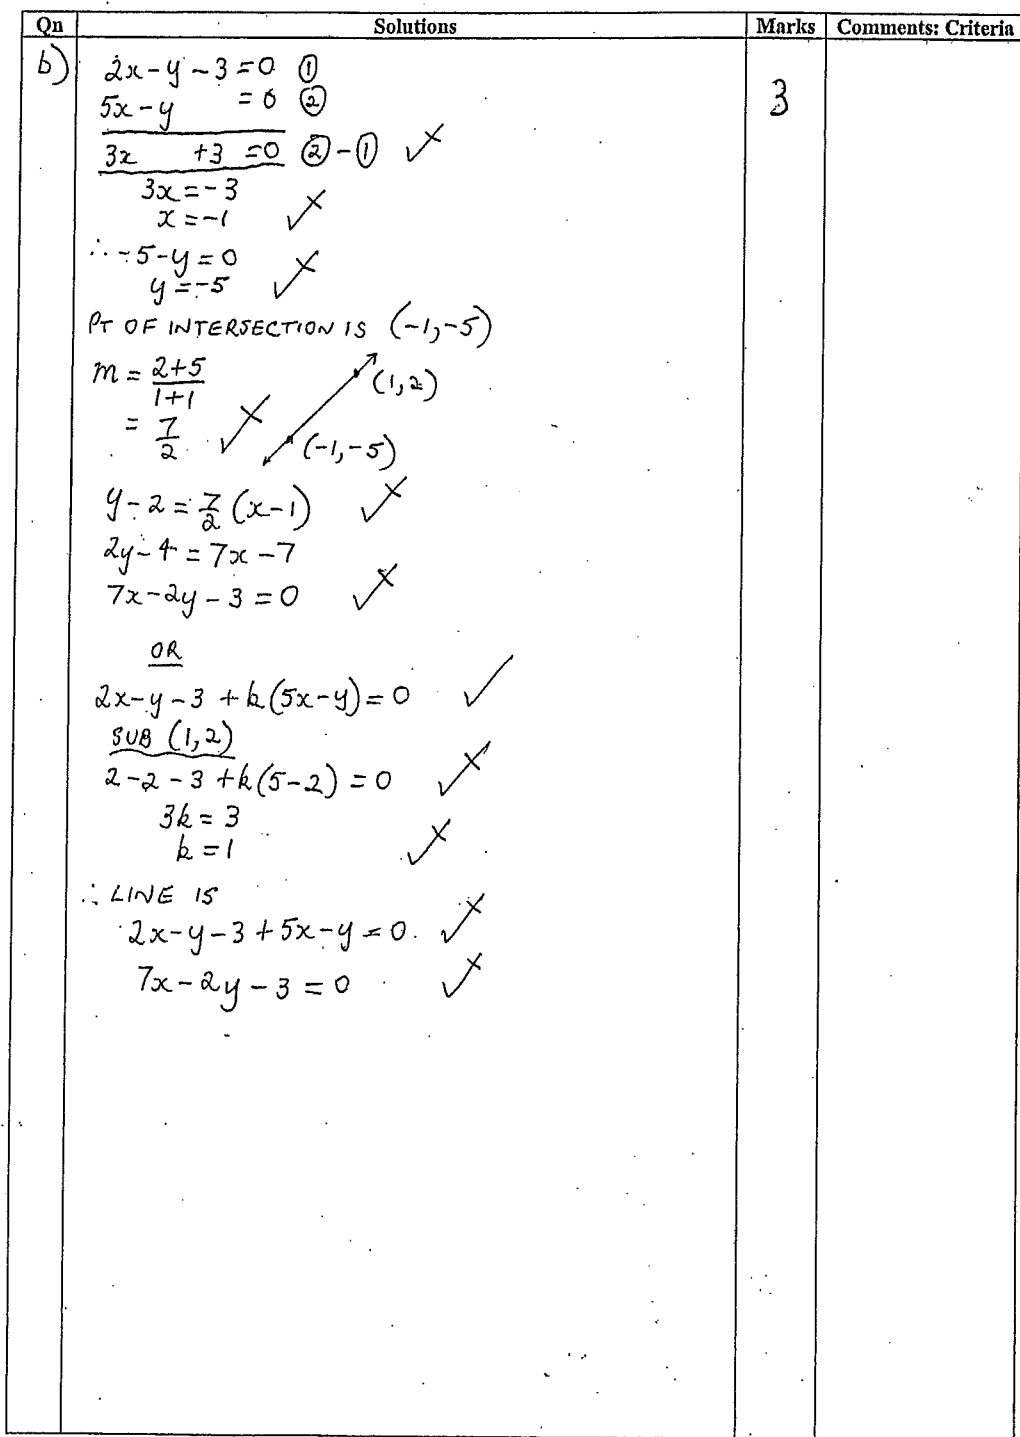 Qn Solutions Marks Comments: Criteria
b) 2x - y - 3 = 0 ① 3
5x - y = 0 ②
3x + 3 = 0 ② - ①
3x = -3
x = -1
∴ -5 - y = 0
y = -5
PT OF INTERSECTION IS (-1, -5)
m = 2+5/1+1
(1, 2)
= 7/2
(-1, -5)
y - 2 = 7/2 (x - 1)
2y - 4 = 7x - 7
7x - 2y - 3 = 0
OR
2x - y - 3 + k(5x - y) = 0
SUB (1, 2)
2 - 2 - 3 + k(5 - 2) = 0
3k = 3
k = 1
∴ LINE IS
2x - y - 3 + 5x - y = 0.
7x - 2y - 3 = 0